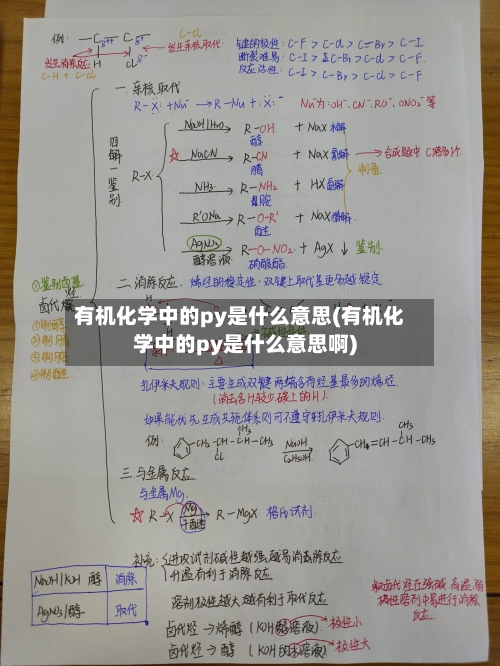 例:
—C— C—
C-Cl
发生亲核取代
发生消除反应
H Cl
C-H + C-Cl
键的极性: C-F > C-Cl > C-Br > C-I
断裂难易: C-I > C-Br > C-Cl > C-F.
反应活性: C-I > C-Br > C-Cl > C-F
一. 亲核取代
R-X: + Nu⁻ → R-Nu + :X:⁻ Nu为:OH⁻.CN⁻.RO⁻.ONO₂⁻等
四解一鉴别
R-X
NaOH/H₂O R-OH + NaX 水解
醇
☆ NaCN R-CN + NaX 氰解 → 合成题中
腈
制备
NH₃ R-NH₂ + HX 氨解
R'ONa R-O-R' + NaX 醇解
醚
AgNO₃ R-O-NO₂ + AgX ↓ 鉴别
醇溶液 硝酸酯
卤代烃
①鉴别卤基
②制醇
③制腈
④制醚
二. 消除反应:
烯烃的稳定性: 双键上取代基更多越稳定
有机化学中的py是什么意思(有机化
学中的py是什么意思啊)
扎伊采夫规则: 主要生成双键两端含荷烃基最多的烯烃
(消去含H较少碳上的H).
如果能优先生成共轭体系则可不遵守扎伊采夫规则.
例:
CH₃
-CH₂-CH-CH-CH₃
Cl
NaOH
C₂H₅OH
CH₃
-CH=CH-CH-CH₃
三. 与金属反应
与金属Mg.
☆ R-X Mg R-MgX 格氏试剂
干醚
NaOH/KOH 醇 消除
AgNO₃/醇 取代
补充: 进攻试剂碱性越强越易消除反应
升温有利于消除反应
溶剂极性越大越有利于取代反应
卤代烃 → 烯醇 (KOH醇溶液) 极性小
卤代烃 → 醇 (KOH的水溶液) 极性大
叔卤代烃在强碱、高温、弱
极性溶剂中易进行消除
反应.